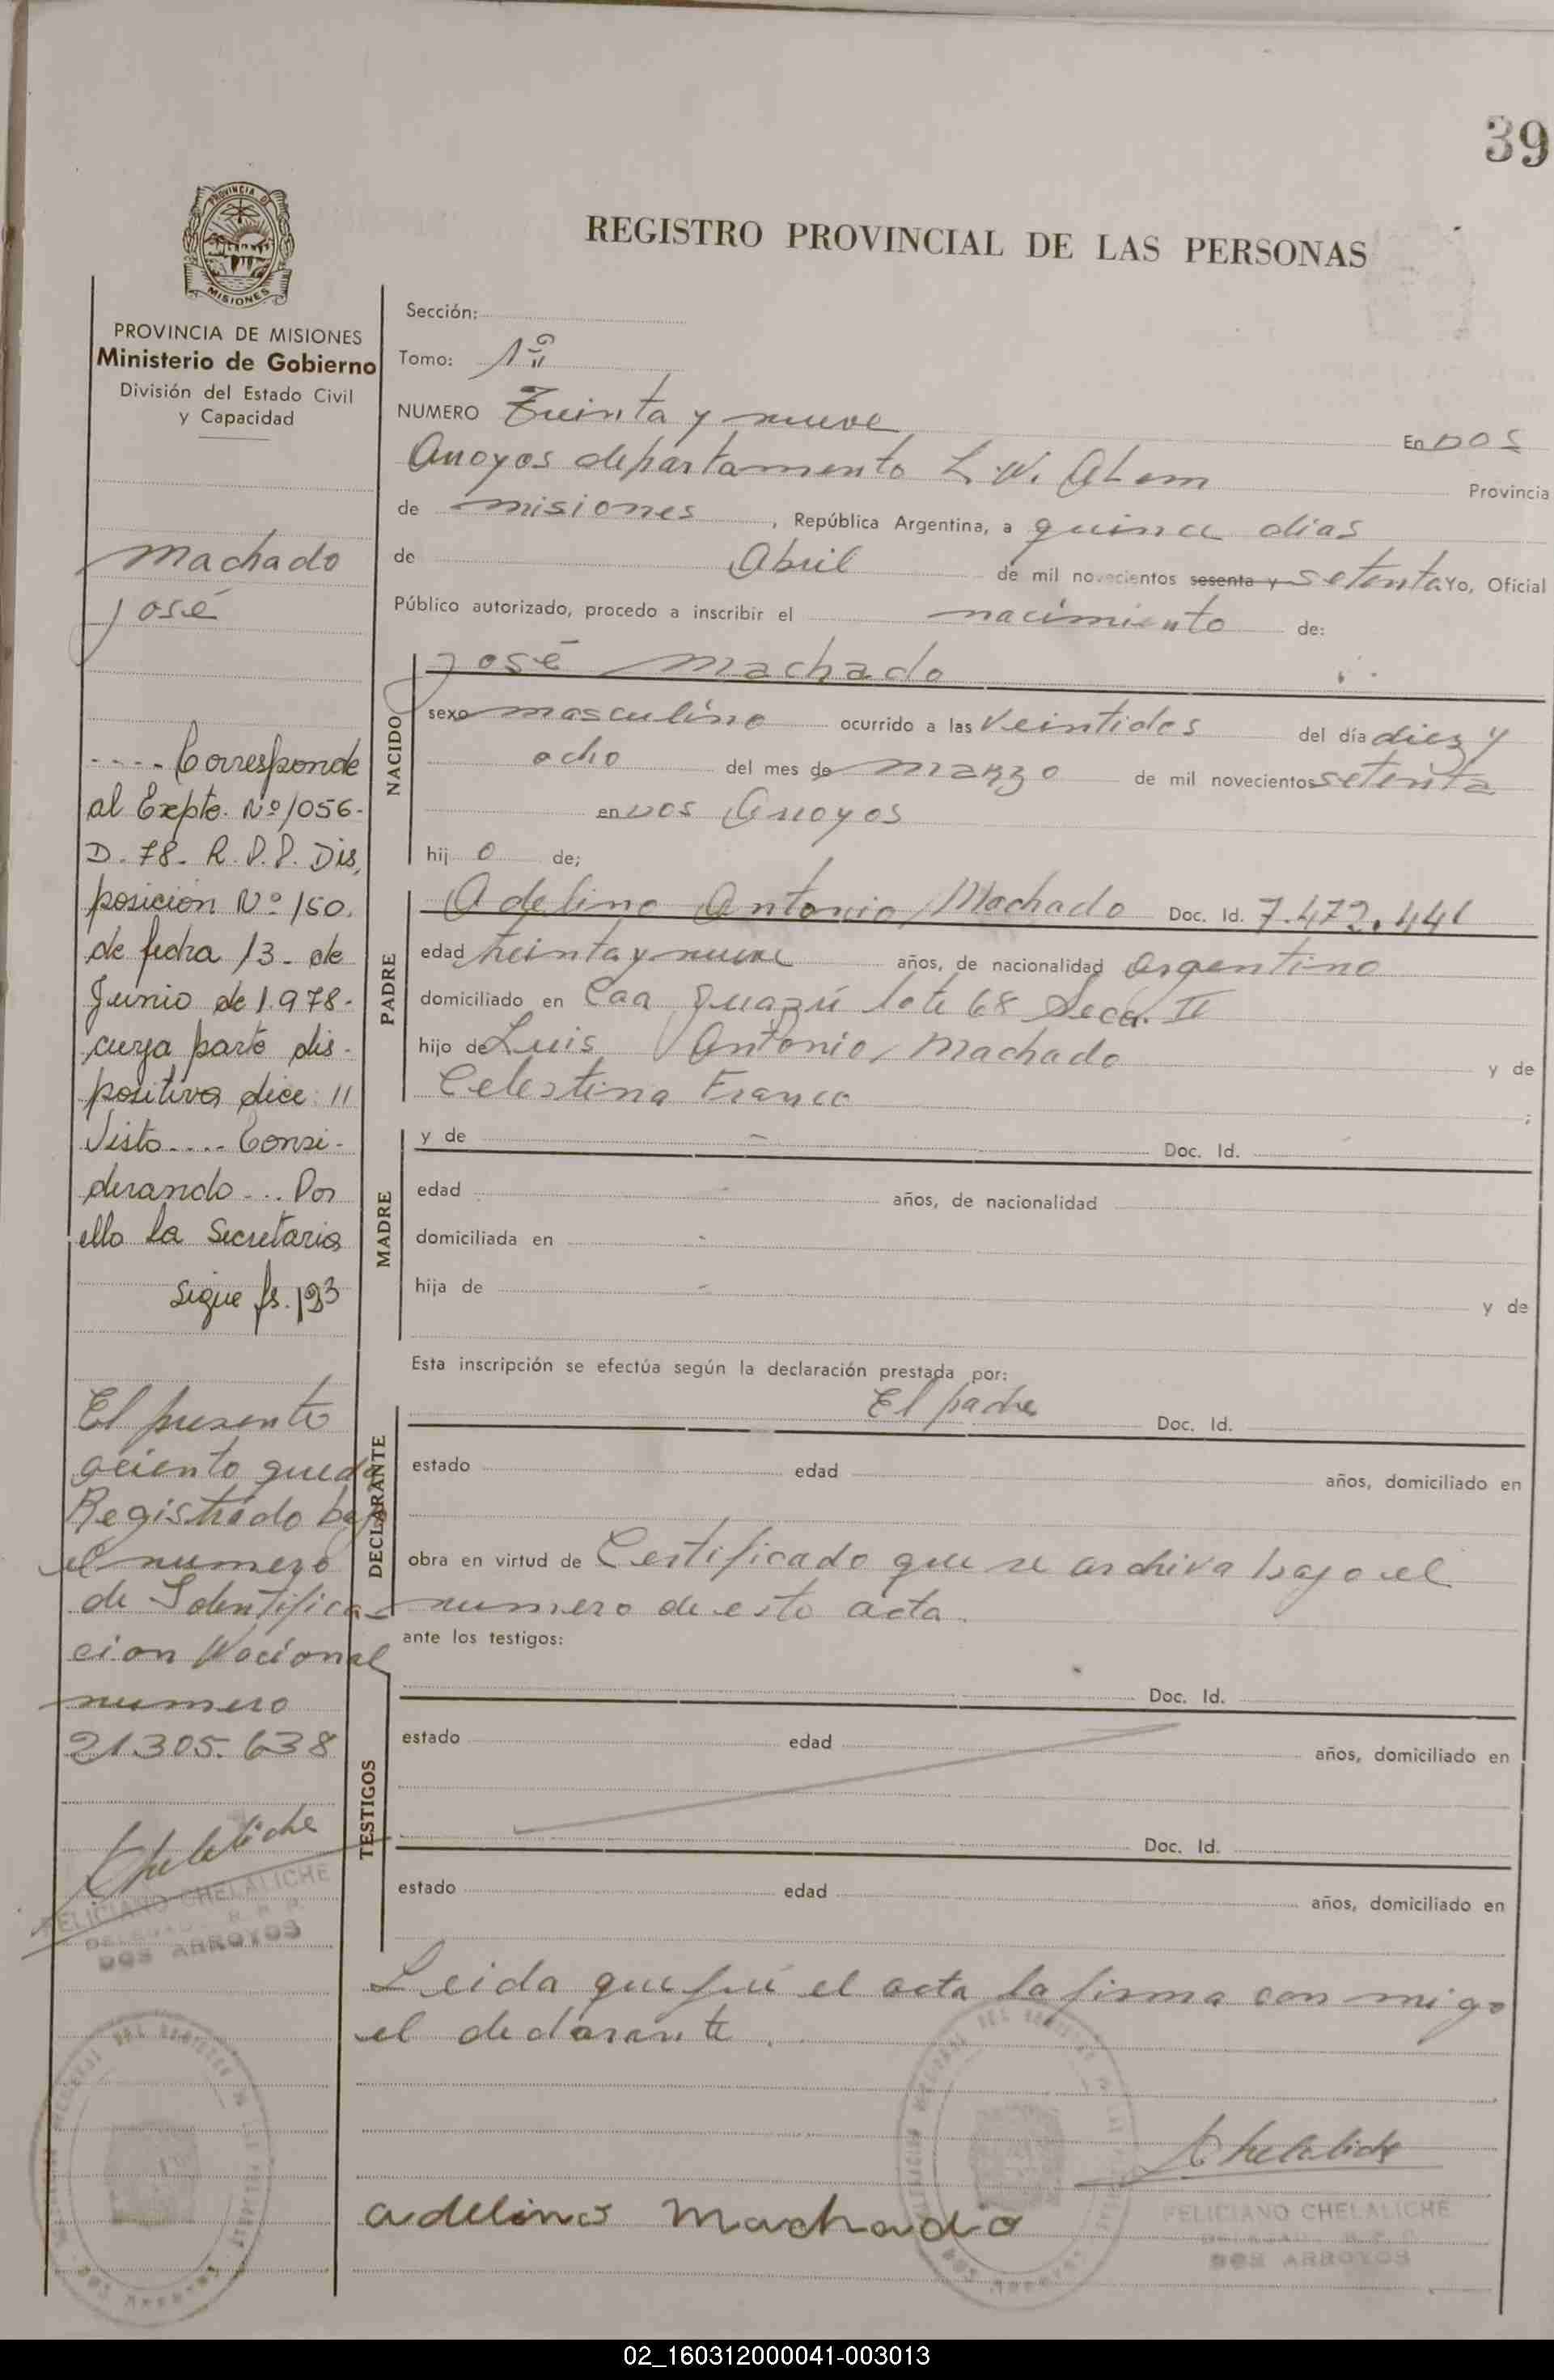 39
PROVINCIA DE
MISIONES
REGISTRO PROVINCIAL DE LAS PERSONAS
PROVINCIA DE MISIONES
Ministerio de Gobierno
División del Estado Civil
y Capacidad
Machado
José
.... Corresponde
al Expte. Nº 1056-
D-78- R.P.P. Dis,
posición Nº 150.
de fecha 13- de
Junio de 1.978-
cuya parte dis-
positiva dice: "
Visto.... Consi-
derando... Por
ello la Secretaria
Sigue fs. 193
El presente
aciento queda
Registrado bajo
el numero
de Identifica-
cion Nacional
numero
21.305.638
FELICIANO CHELALICHE
DOS ARROYOS
Sección:
Tomo: 1º
NUMERO Treinta y nueve En DOS
Arroyos departamento L. N. ALem Provincia
de misiones, República Argentina, a quince dias
de Abril de mil novecientos sesenta y setenta Yo, Oficial
Público autorizado, procedo a inscribir el nacimiento de:
NACIDO
José Machado
sexo masculino ocurrido a las Veintidos del día diez y
ocho del mes de marzo de mil novecientos setenta
en DOS Arroyos
hij o de;
PADRE
Adelino Antonio Machado Doc. Id. 7.472.441
edad treinta y nueve años, de nacionalidad argentino
domiciliado en Caa Guazú lote 68 Secc. II
hijo de Luis Antonio Machado y de
Celestina Franco ;
MADRE
y de - Doc. Id.
edad - años, de nacionalidad
domiciliada en -
hija de - y de
Esta inscripción se efectúa según la declaración prestada por:
DECLARANTE
El padre Doc. Id.
estado edad años, domiciliado en
obra en virtud de Certificado que se archiva bajo el
numero de esto acta.
ante los testigos:
TESTIGOS
Doc. Id.
estado edad años, domiciliado en
Doc. Id.
estado edad años, domiciliado en
Leida que fué el acta la firma con migo
el declarante.
Adelino Machado
FELICIANO CHELALICHE
DOS ARROYOS
02_160312000041-003013